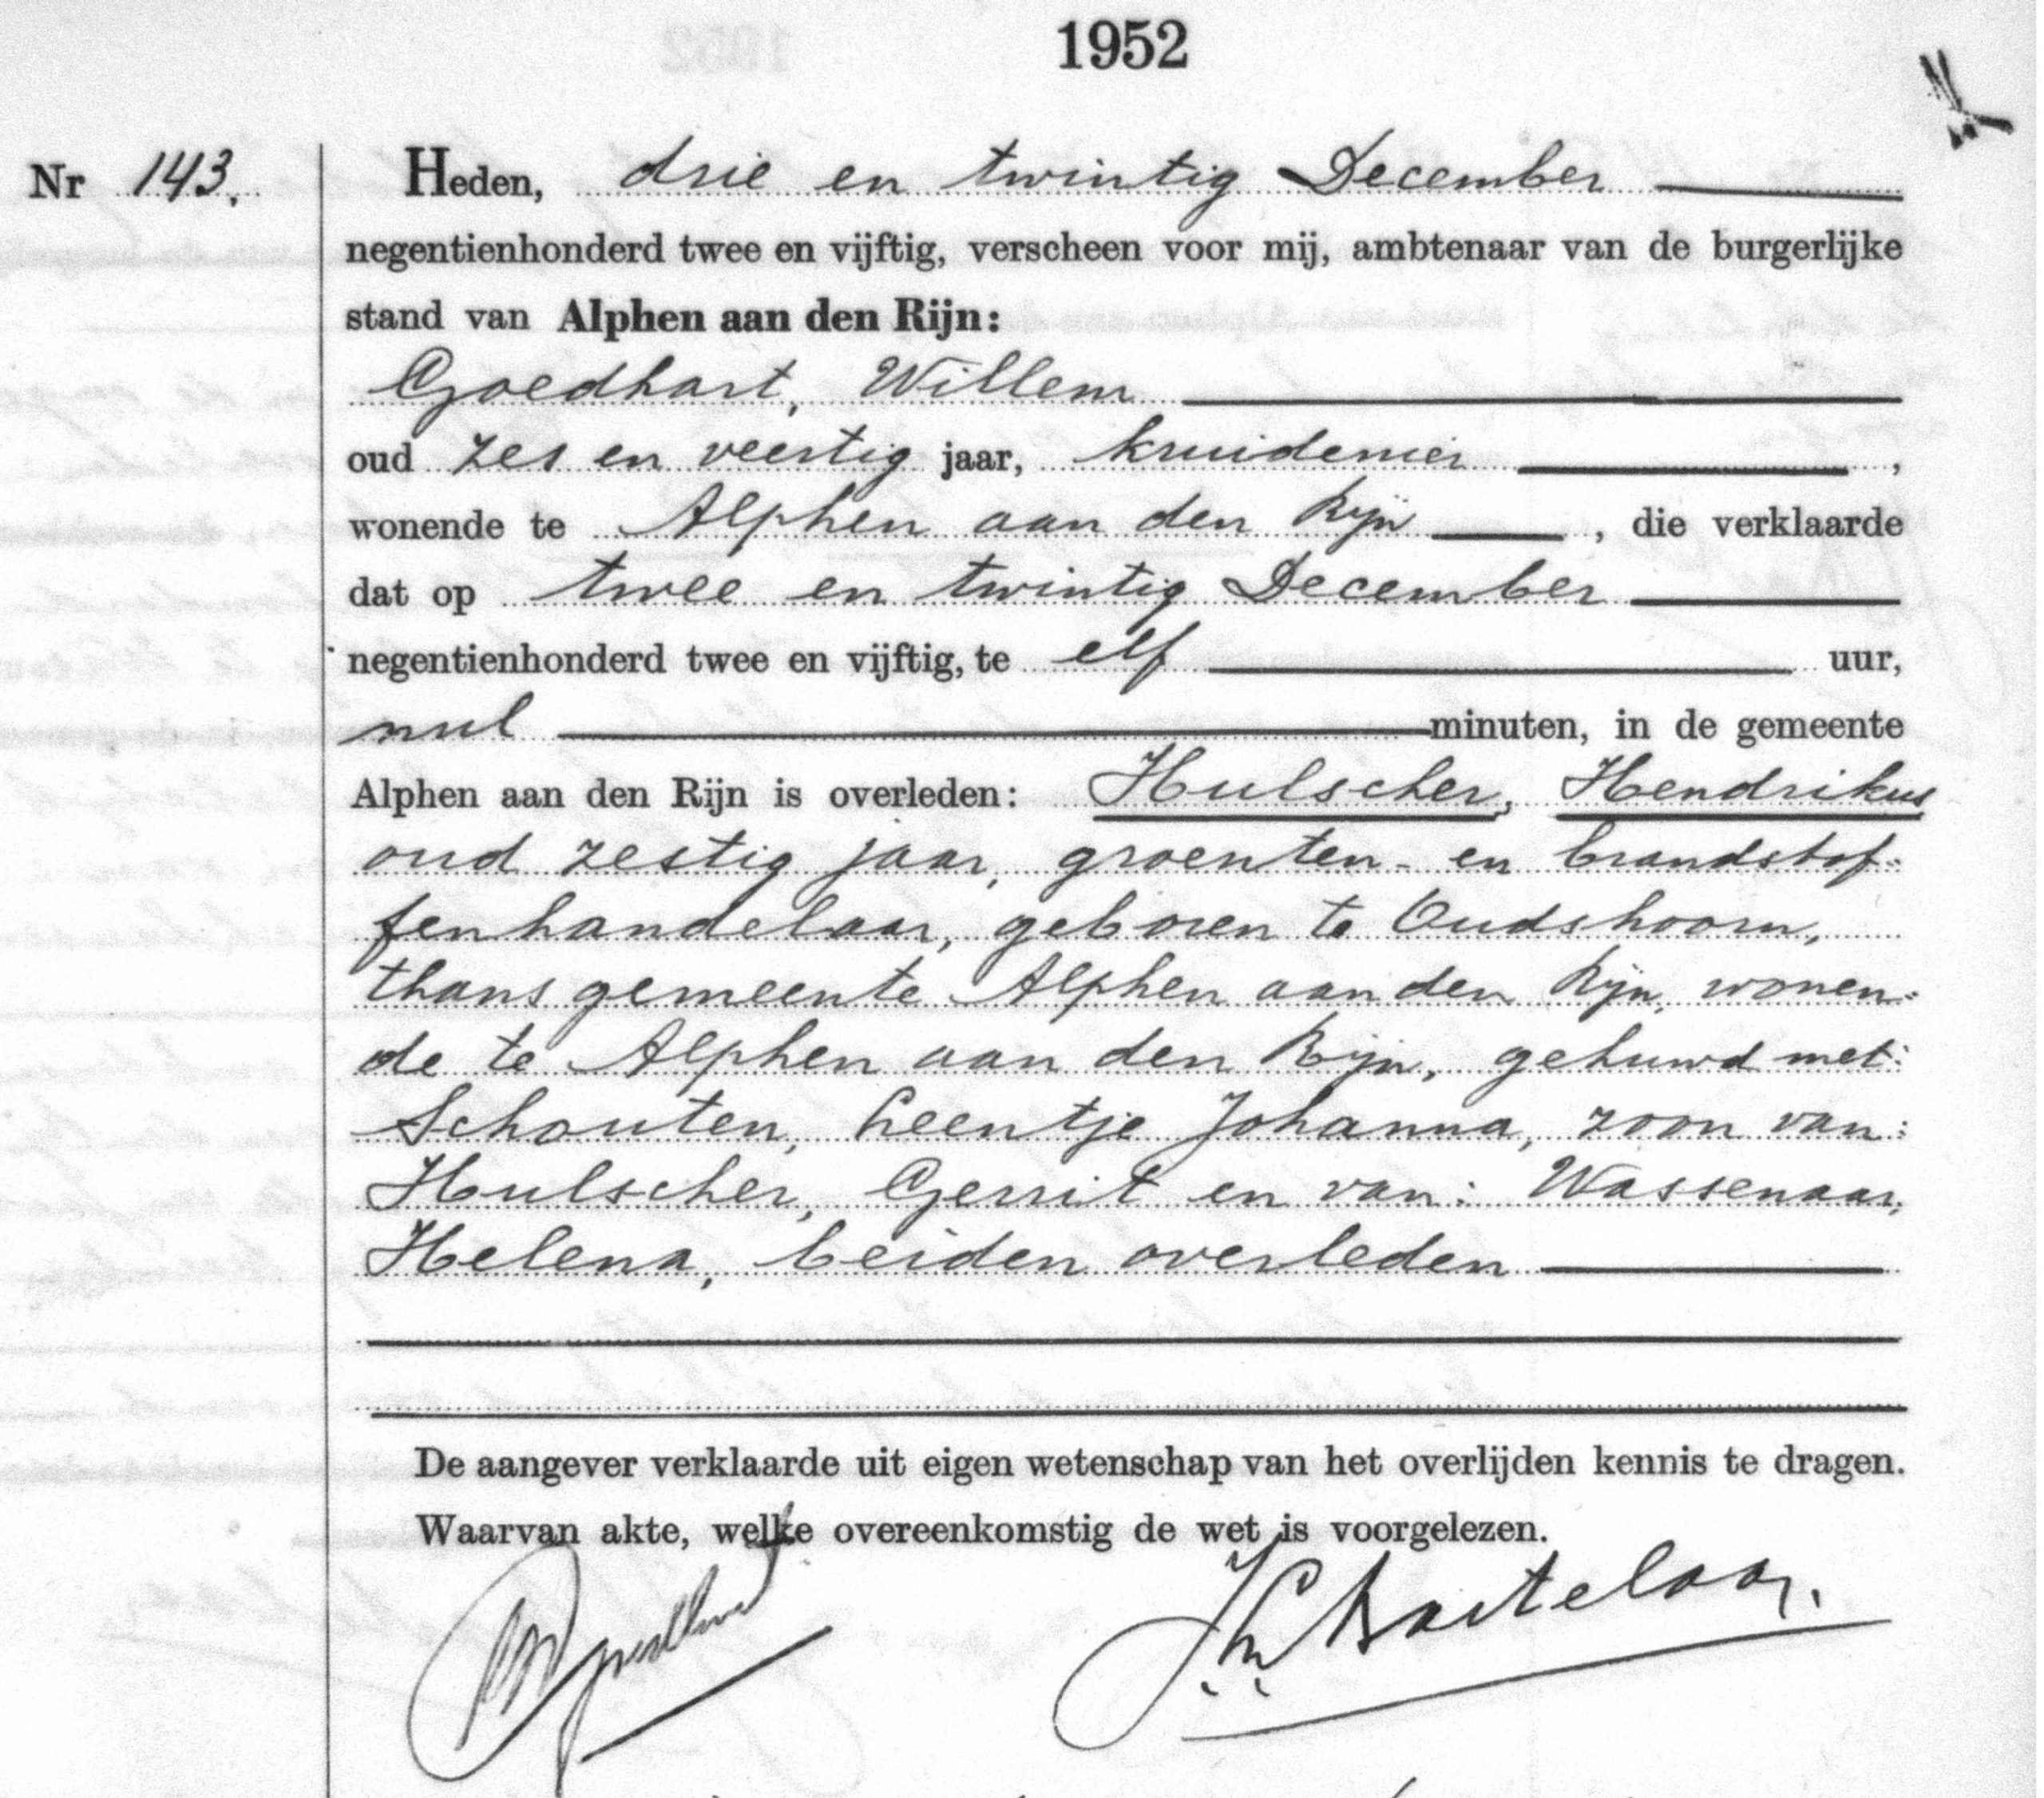 1952
Nr 143.
Heden, drie en twintig December
negentienhonderd twee en vijftig, verscheen voor mij, ambtenaar van de burgerlijke
stand van Alphen aan den Rijn:
Goedhart, Willem
oud zes en veertig jaar, kruidenier ,
wonende te Alphen aan den Rijn , die verklaarde
dat op twee en twintig December
negentienhonderd twee en vijftig, te elf uur,
nul minuten, in de gemeente
Alphen aan den Rijn is overleden: Hulscher, Hendrikus
oud zestig jaar, groenten- en brandstof-
fenhandelaar, geboren te Oudshoorn,
thans gemeente Alphen aan den Rijn, wonen-
de te Alphen aan den Rijn, gehuwd met:
Schouten, Leentje Johanna, zoon van:
Hulscher, Gerrit en van: Wassenaar,
Helena, beiden overleden
De aangever verklaarde uit eigen wetenschap van het overlijden kennis te dragen.
Waarvan akte, welke overeenkomstig de wet is voorgelezen.